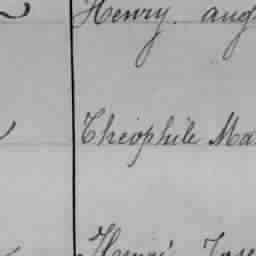 Henry. aug
Théophile Ma
Henri Jose